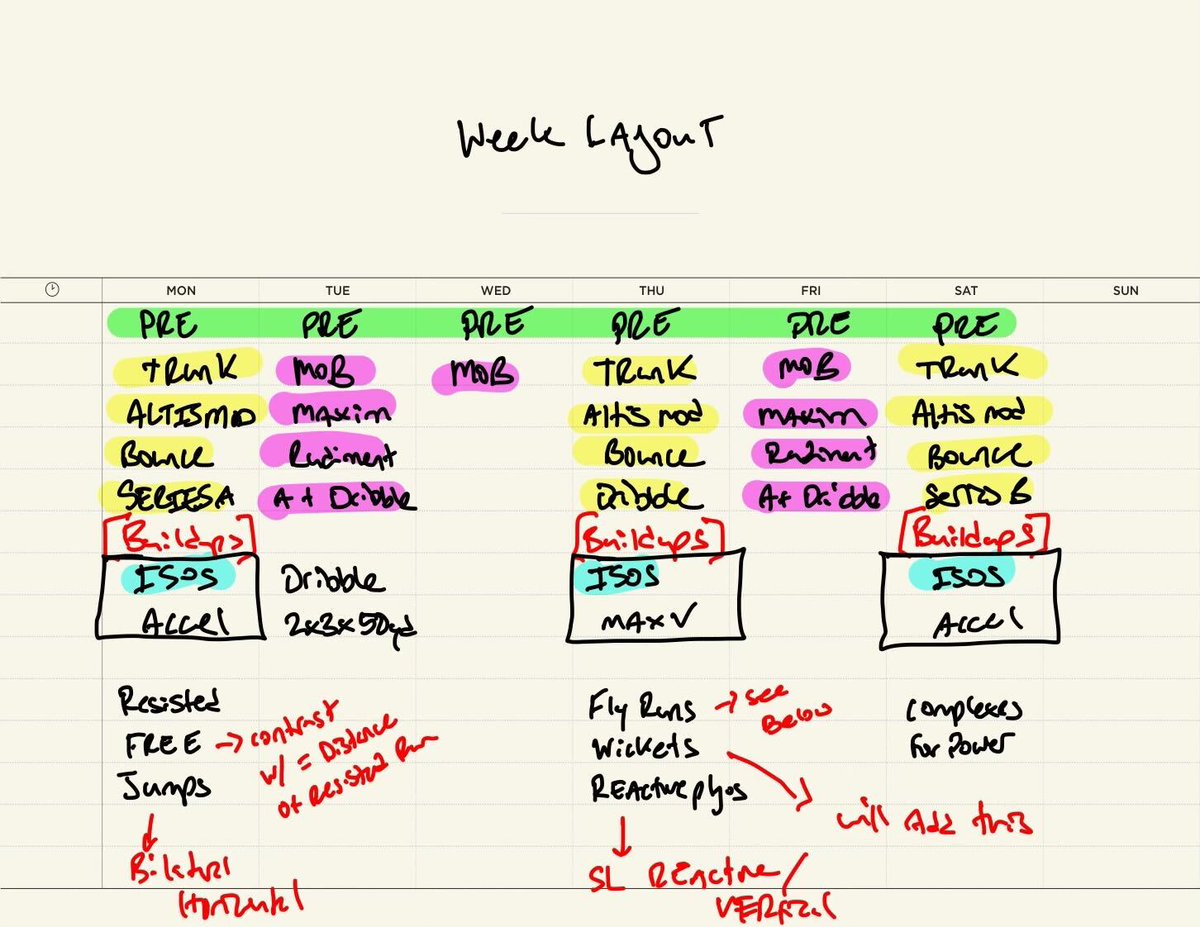 Week Layout
MON TUE WED THU FRI SAT SUN
PRE PRE PRE PRE PRE PRE
Trunk MOB MOB Trunk MOB Trunk
ALTISMOD Maxim Altis mod Maxim Altis mod
Bounce Rudiment Bounce Rudiment Bounce
SERIES A A + Dribble Dribble A + Dribble Series B
[Buildups] [Buildups] [Buildups]
ISOS Dribble ISOS ISOS
Accel 2x3x50yd MAX V Accel
Resisted
FREE → contrast
w/ = Distance
of Resisted Run
Jumps
Bilateral
Horizontal
Fly Runs → see
Below
Wickets
REActive plyos
will Add this
SL REactive/
VERtical
Complexes
For Power